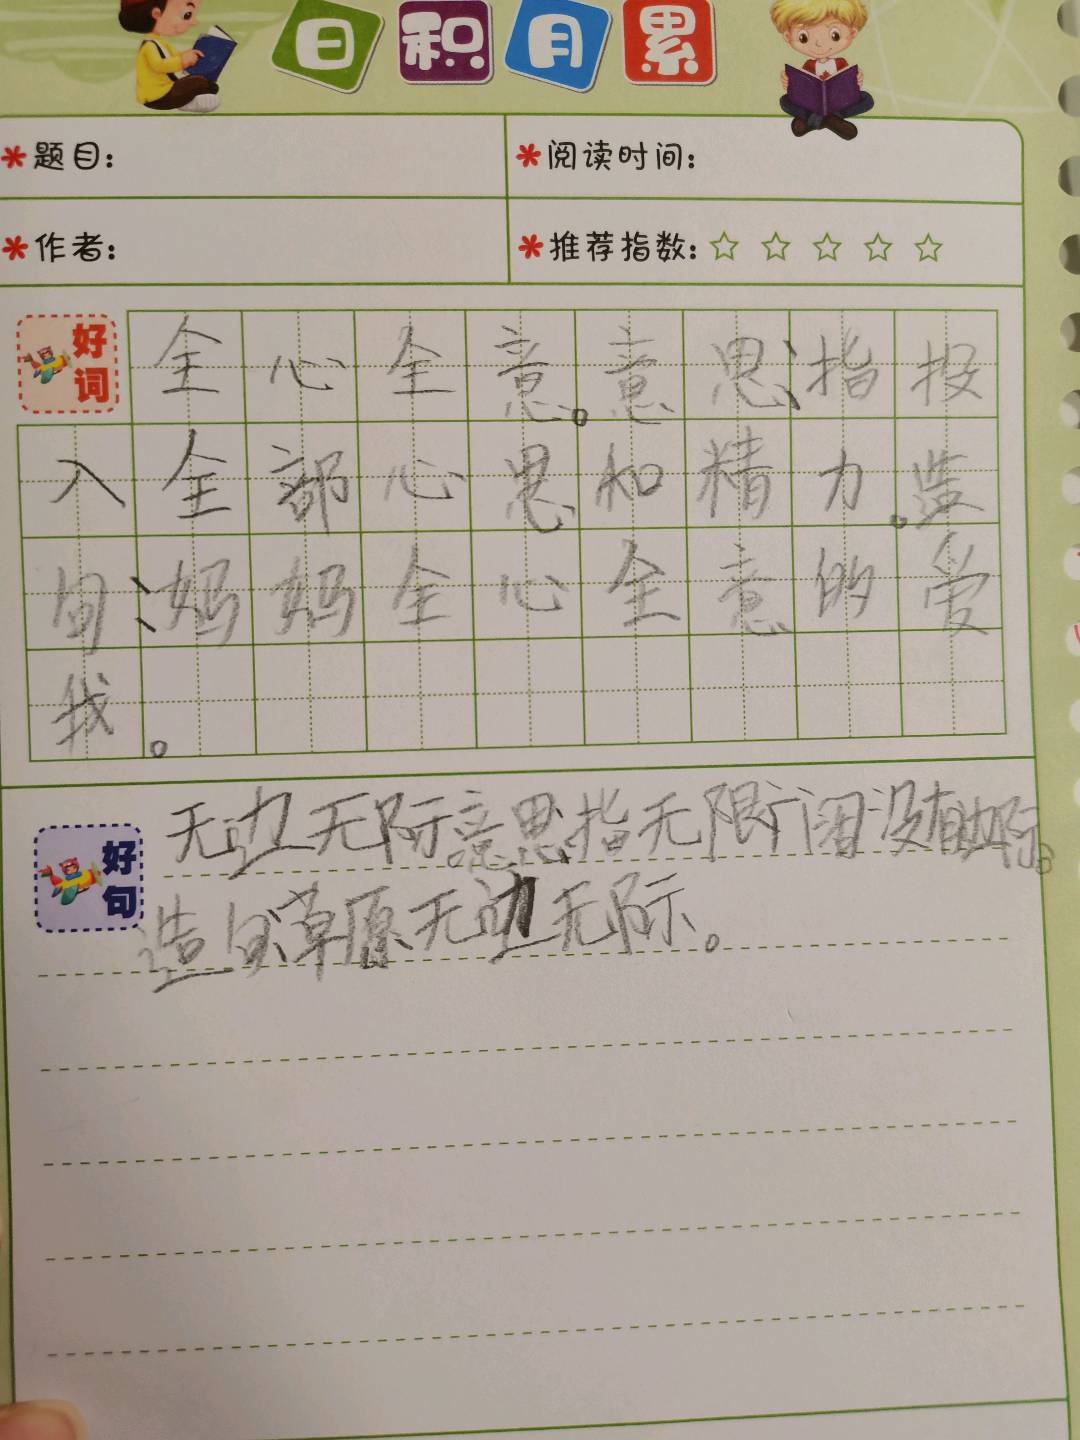 日积月累
题目： 阅读时间：
作者： 推荐指数：
好词
全心全意。意思：指投
入全部心思和精力。造
句：妈妈全心全意的爱
我。
好句
无边无际意思指无限广阔没有边际。
造句草原无边无际。